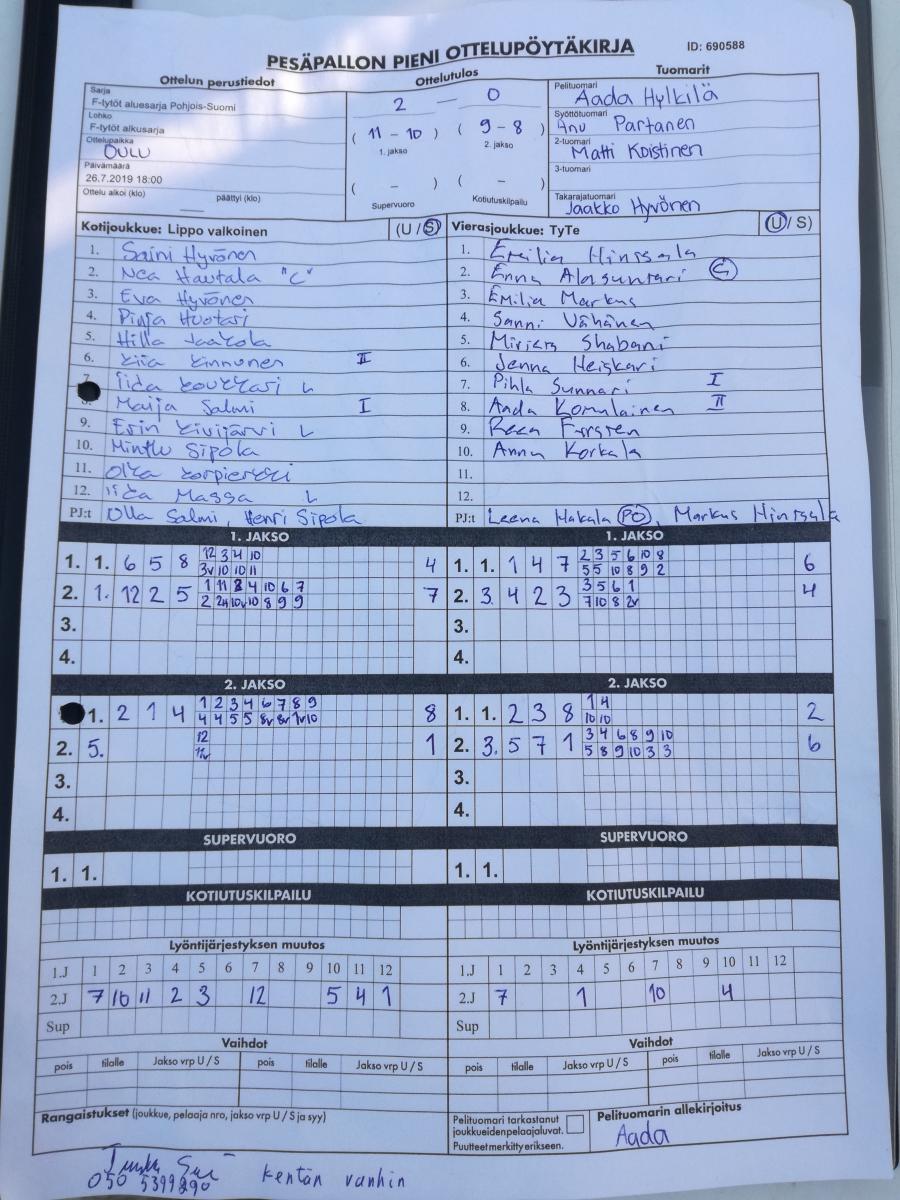 PESÄPALLON PIENI OTTELUPÖYTÄKIRJA
ID: 690588
Ottelun perustiedot
Sarja
F-tytöt aluesarja Pohjois-Suomi
Lohko
F-tytöt alkusarja
Ottelupaikka
OULU
Päivämäärä
26.7.2019 18:00
Ottelu alkoi (klo) päättyi (klo)
Ottelutulos
2 — 0
( 11 - 10 ) ( 9 - 8 )
1. jakso 2. jakso
( - ) ( - )
Supervuoro Kotiutuskilpailu
Tuomarit
Pelituomari
Aada Hylkilä
Syöttötuomari
Anu Partanen
2-tuomari
Matti Koistinen
3-tuomari
Takarajatuomari
Jaakko Hyvönen
Kotijoukkue: Lippo valkoinen (U / S)
1. Saini Hyvönen
2. Nea Hautala "C"
3. Eva Hyvönen
4. Pinja Huotari
5. Hilla Jaakola
6. Kiia Kinnunen II
7. Iida Koukkari L
8. Maija Salmi I
9. Erin Kivijärvi L
10. Minttu Sipola
11. Olka Korpierkki
12. Iida Massa L
PJ:t Olla Salmi, Henri Sipola
Vierasjoukkue: TyTe (U / S)
1. Emilia Hinssala
2. Enna Alasuntari C
3. Emilia Markus
4. Sanni Vähänen
5. Mirjam Shabani
6. Jenna Heiskari
7. Pihla Sunnari I
8. Aada Komulainen II
9. Forsten
10. Anna Korkala
11.
12.
PJ:t Leena Hakala PO, Markus Hinssala
1. JAKSO
12 3 4 10
1. 1. 6 5 8 3v 10 10 11 4
1 11 3 4 10 6 7
2. 1. 12 2 5 2 2v 10v 10 8 9 9 7
3.
4.
1. JAKSO
2 3 5 6 10 8
1. 1. 1 4 7 5 5 10 8 9 2 6
3 5 6 1
2. 3. 4 2 3 7 10 8 2v 4
3.
4.
2. JAKSO
1 2 3 4 6 7 8 9
1. 2 1 4 4 4 5 5 8v 8v 1v 10 8
12
2. 5. 11v 1
3.
4.
2. JAKSO
1 4
1. 1. 2 3 8 10 10 2
3 4 6 8 9 10
2. 3. 5 7 1 5 8 9 10 3 3 6
3.
4.
SUPERVUORO
1. 1.
SUPERVUORO
1. 1.
KOTIUTUSKILPAILU
KOTIUTUSKILPAILU
Lyöntijärjestyksen muutos
1.J 1 2 3 4 5 6 7 8 9 10 11 12
2.J 7 10 11 2 3 12 5 4 1
Sup
Lyöntijärjestyksen muutos
1.J 1 2 3 4 5 6 7 8 9 10 11 12
2.J 7 1 10 4
Sup
Vaihdot
pois tilalle Jakso vrp U / S pois tilalle Jakso vrp U / S
Vaihdot
pois tilalle Jakso vrp U / S pois tilalle Jakso vrp U / S
Rangaistukset (joukkue, pelaaja nro, jakso vrp U / S ja syy)
Pelituomari tarkastanut
joukkueidenpelaajaluvat.
Puutteet merkitty erikseen.
Pelituomarin allekirjoitus
Aada
050 5399290 kentän vanhin